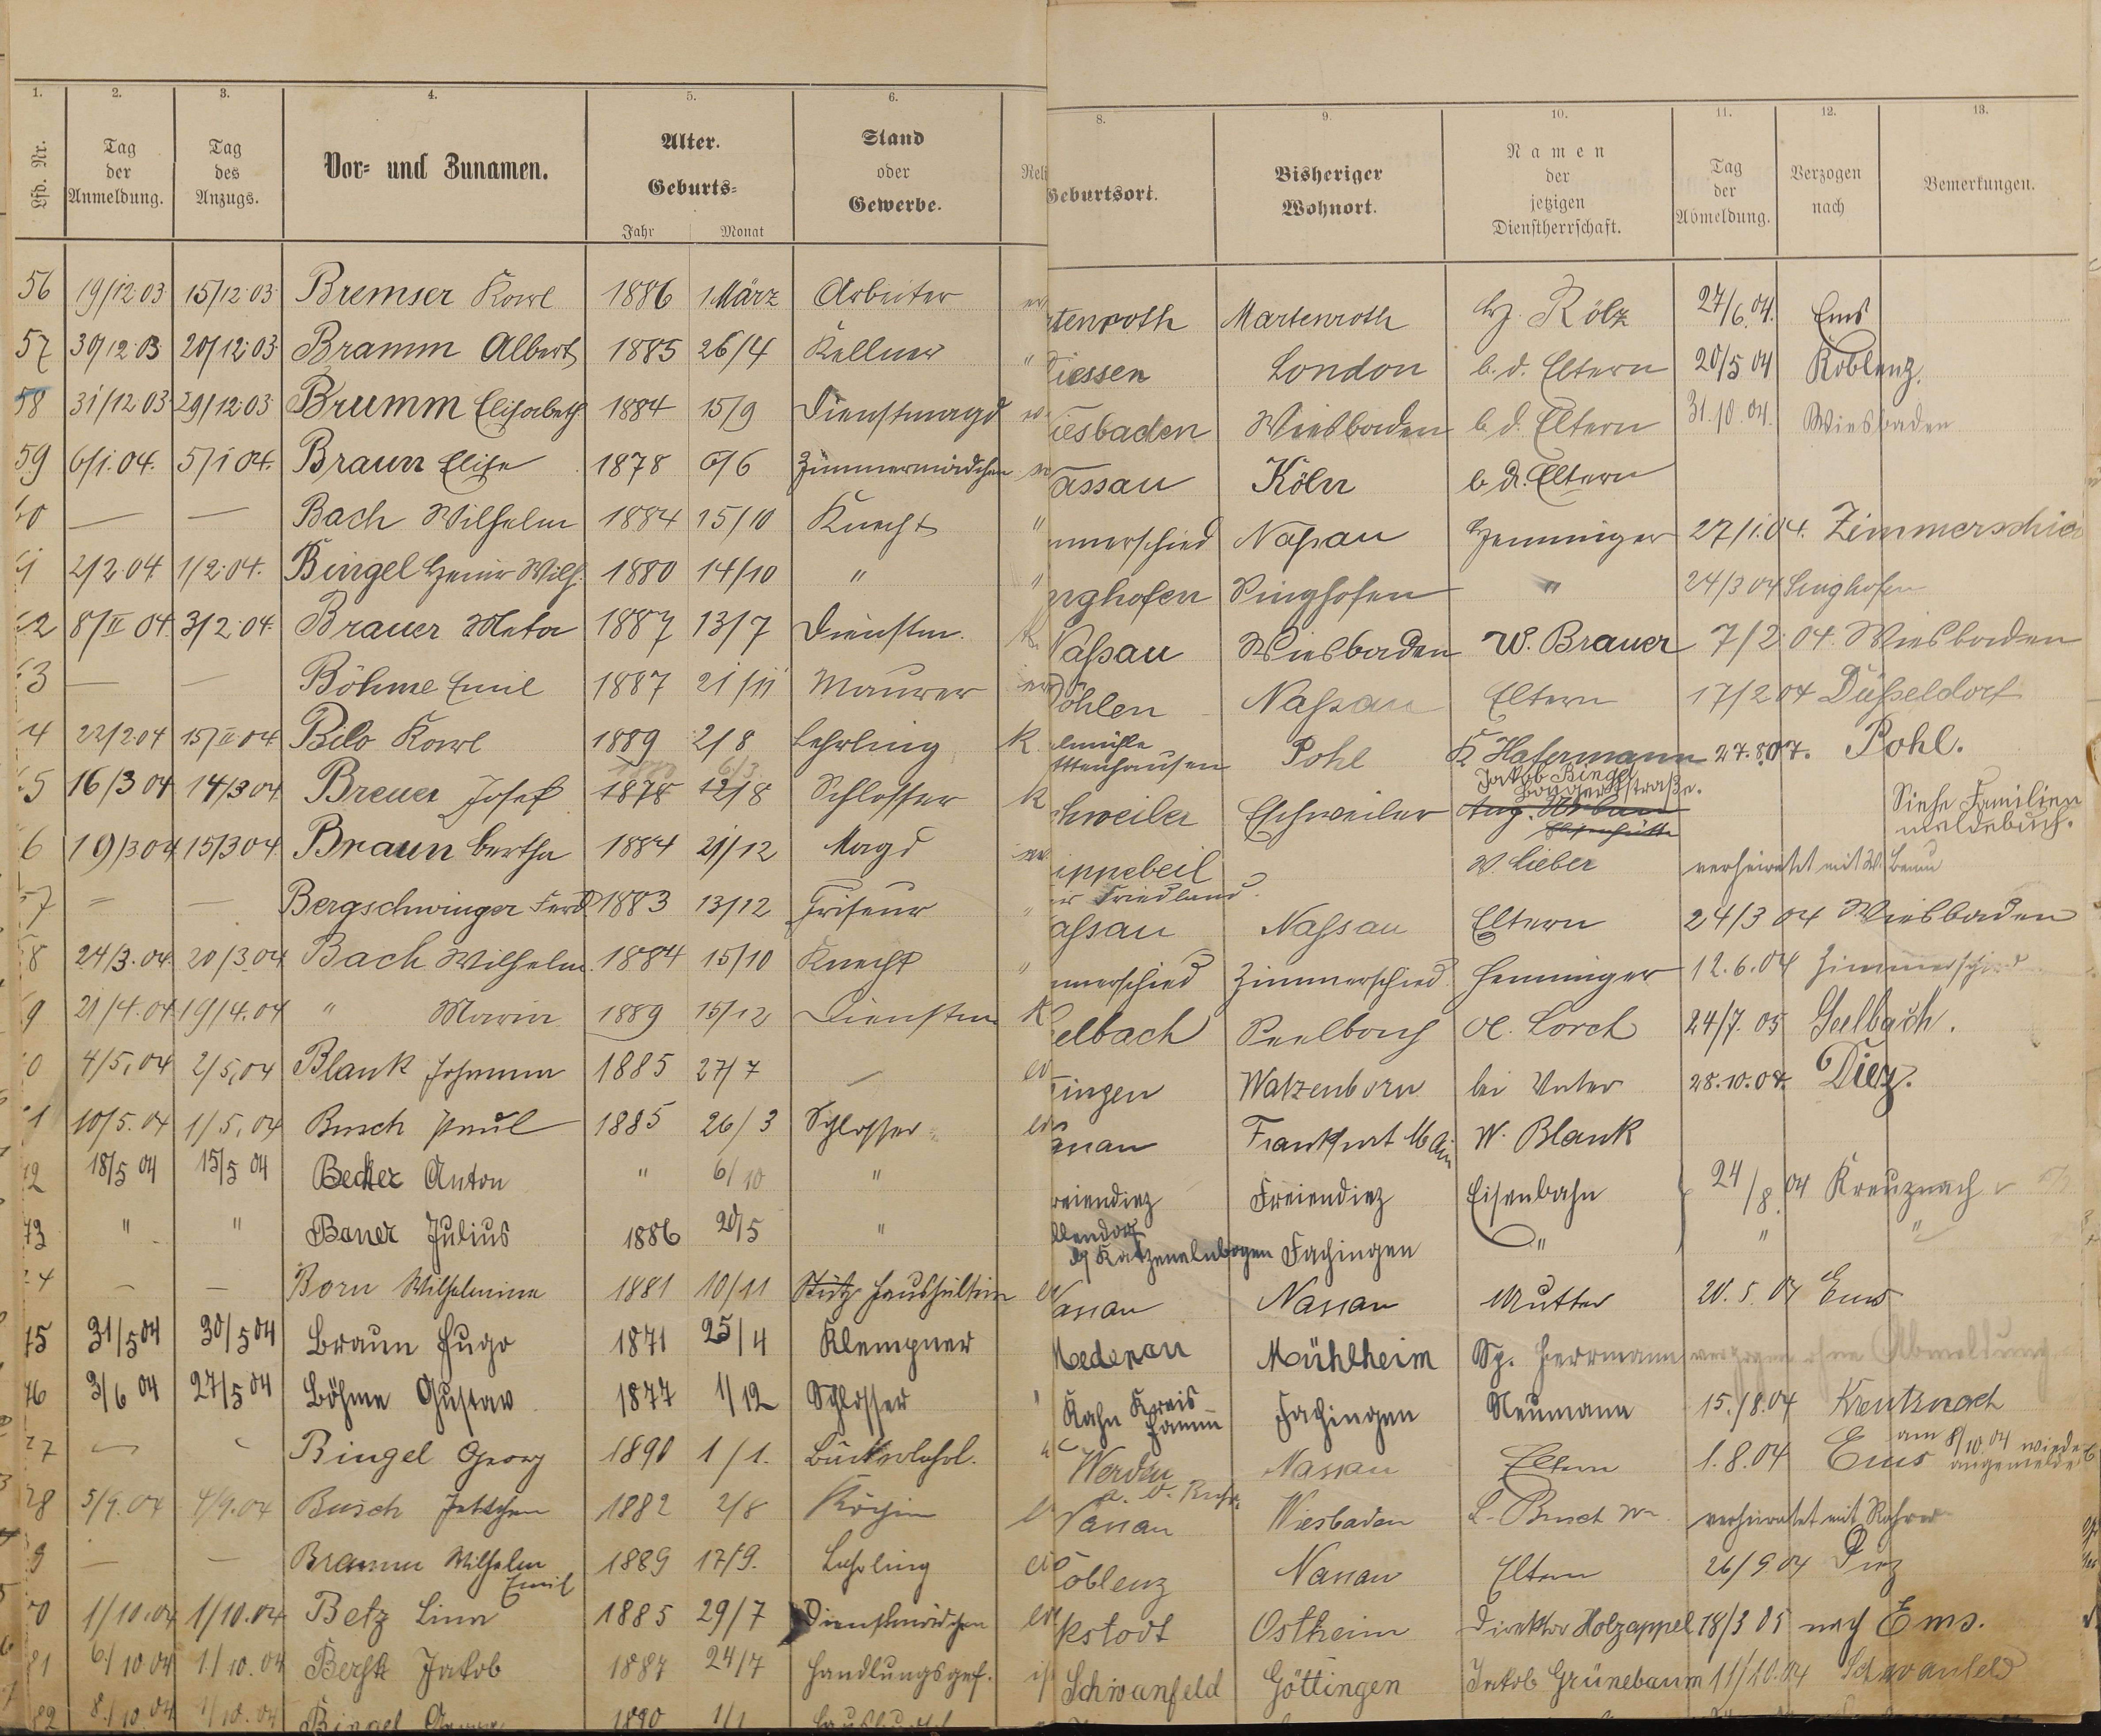 1. 2. 3. 4. 5. 6. 8. 9. 10. 11. 12. 13.
Lfd. Nr. Tag der Anmeldung. Tag des Anzugs. Vor- und Zunamen. Alter. Geburts- Jahr Monat Stand oder Gewerbe. Reli Geburtsort. Bisheriger Wohnort. Namen der jetzigen Dienstherrschaft. Tag der Abmeldung. Verzogen nach Bemerkungen.
56 19/12 03 15/12 03 Bremser Karl 1886 1 März Arbeiter ev tenroth Martenroth Hz. Rölz 27/6 04. Ems
57 30/12 03 20/12 03 Bramm Albert 1885 26/4 Kellner " Giessen London b. d. Eltern 20/5 04 Koblenz.
58 31/12 03 29/12 03 Brumm Elisabeth 1884 15/9 Dienstmagd iesbaden Wiesbaden b. d. Eltern 31.10.04. Wiesbaden
59 6/1. 04. 5/1 04. Braun Elise 1878 6/6 Zimmermädchen assau Köln b. d. Eltern
— — Bach Wilhelm 1884 15/10 Knecht " merschied Naßau Henninger 27/1.04. Zimmerschied
2/2 04 1/2 04. Bingel Heinr Wilh. 1880 14/10 " " nghofen Singhofen " 24/3 04 Singhofen
2 8/II 04 3/2 04. Brauer Meta 1887 13/7 Dienstm. k. Naßau Wiesbaden W. Brauer 7/2 04. Wiesbaden
3 — — Böhme Emil 1887 21/11 Maurer öhlen Naßau Eltern 17/2 04 Düßeldorf
4 22/2 04 15/II 04 Bilo Karl 1889 2/8 Lehrling k. lmühle ttenhausen Pohl K Hafermann 27.8.07. Pohl.
5 16/3 04 14/3 04 Breuer Josef 1878 12/8 6/3 Schlosser k hweiler Eschweiler Jakob Bingel Aug. Urban Siehe Familien meldebuch.
6 19/3 04 15/3 04 Braun Bertha 1884 21/12 Magd ev. ippebeil Friedland. W. Lieber verheiratet mit W.
7 — — Bergschwinger Ferd 1883 13/12 Friseur " aßau Naßau Eltern 24/3 04 Wiesbaden
8 24/3. 04. 20/3 04 Bach Wilhelm. 1884 15/10 Knecht " merschied Zimmerschied Henninger 12.6.04 Zimmerschied
9 21/4. 04 19/4. 04 " Maria 1889 15/12 Dienstm k elbach Seelbach A. Lorch 24/7. 05 Seelbach.
0 4/5, 04 2/5, 04 Blank Johanna 1885 27/7 — ev ingen Watzenborn bei Vater 28.10.04. Diez.
1 10/5. 04 1/5, 04 Busch Paul 1885 26/3 Schlosser ev anau Frankfurt Main W. Blank
72 18/5 04 15/5 04 Becker Anton " 6/10 " reiendiez Freiendiez Eisenbahn 24/8 04 Kreuznach
73 " " Bauer Julius 1886 20/5 " llendorf Katzenelnbogen Fachingen " " "
74 — — Born Wilhelmine 1881 10/11 Stütz Haushälterin ev Nassau Nassau Mutter 20. 5. 04 Ems
75 31/5 04 30/5 04 Braun Hugo 1871 25/4 Klempner Medenau Mühlheim Sp. Herrmann verzogen ohne Abmeldung
76 3/6 04 27/5 04 Böhme Gustav 1877 1/12 Schlosser Kahn Kreis Hamm Fachingen Neumann 15./8.04 Kreutznach
77 Bingel Georg 1890 1/1. Werden a. d. Ruhr Nassau Eltern 1. 8. 04 Ems am 8/10. 04 wieder angemeldet
78 5/9. 04 4/9. 04 Busch Jettchen 1882 2/8 Köchin Nassau Wiesbaden L. Busch Ww. verheiratet mit Rohrer
9 — — Bramm Wilhelm Emil 1889 17/9. Lehrling ev oblenz Nassau Eltern 26/9 04 Diez
0 1/10. 04 1/10. 04 Betz Lina 1885 29/7 Dienstmädchen ev kstadt Ostheim Direktor Holzappel 18/3 05 nach Ems.
81 6/10 04 1/10. 04 Jakob 1887 24/7 Handlungsgeh. Schwanfeld Göttingen Jakob Grünebaum 11/10.04 Schwanfeld
82 8/10 04 1/10. 04 Bingel 1890 1/1